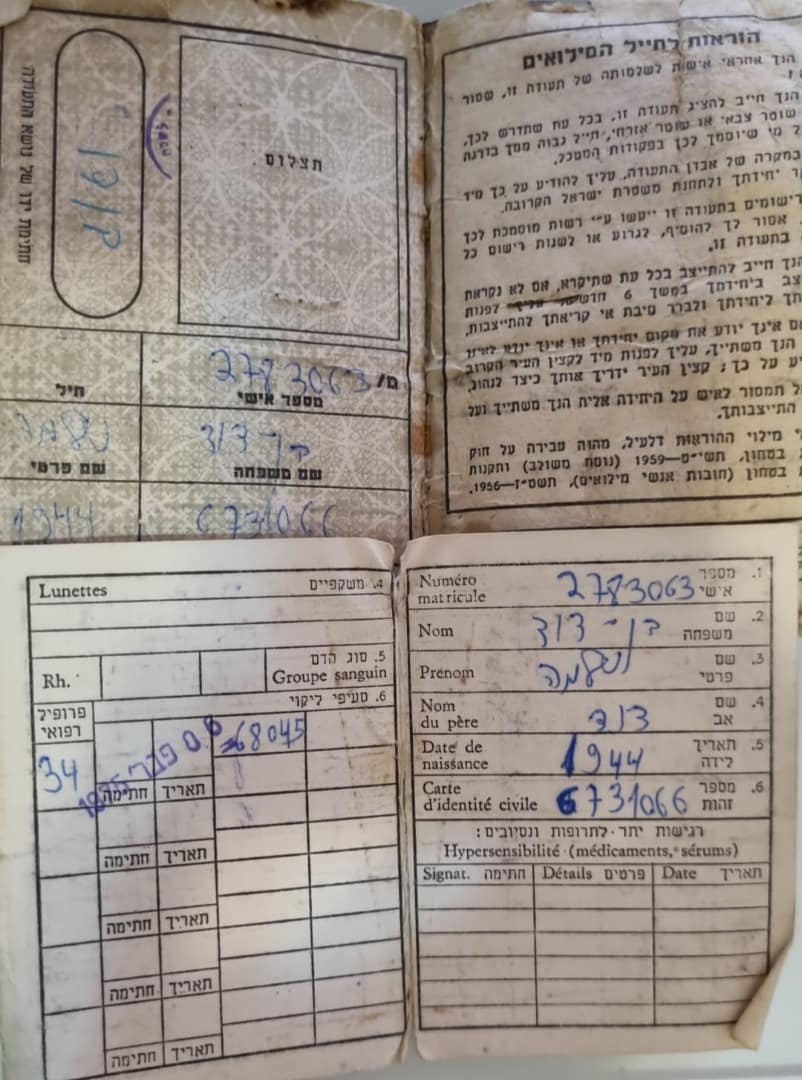 חתימת ידו של נושא התעודה
תצלום
מ/ 2783063
מספר אישי
חיל
בן-דוד
שם משפחה
שם פרטי
6731066
1944
הוראות לחייל המילואים
הנך אחראי אישית לשלמותה של תעודה זו, שמור
הנך חייב להציג תעודה זו, בכל עת שתדרש לכך,
שוטר צבאי או שוטר אזרחי, חייל גבוה ממך בדרגה
מי שיוסמך לכך בפקודות המטכל.
במקרה של אבדן התעודה, עליך להודיע על כך מיד
יחידתך ולתחנת משטרת ישראל הקרובה.
רישומים בתעודה זו ייעשו ע״י רשות מוסמכת לכך
אסור לך להוסיף, לגרוע או לשנות רישום כל
בתעודה זו.
הנך חייב להתייצב בכל עת שתיקרא, אם לא נקראת
ביחידתך במשך 6 עליך לפנות
ליחידתך ולברר סיבת אי קריאתך להתייצבות,
אם אינך יודע את מקום יחידתך או אינך יודע לאיזו
הנך משתייך, עליך לפנות מיד לקצין העיר הקרוב
על כך; קצין העיר ידריך אותך כיצד לנהוג.
תמסור לאיש על היחידה אליה הנך משתייך ועל
התייצבותך.
מילוי ההוראות דלעיל, מהוה עבירה על חוק
בטחון, תשי״ט—1959 (נוסח משולב) ותקנות
בטחון (חובות אנשי מילואים), תשט״ז—1956.
Lunettes 4. משקפיים
Rh. 5. סוג הדם
Groupe sanguin
6. סעיפי ליקוי
פרופיל
רפואי
34 68045
חתימה תאריך
חתימה תאריך
חתימה תאריך
חתימה תאריך
חתימה תאריך
Numéro
matricule 2783063 1. מספר
אישי
Nom בן-דוד 2. שם
משפחה
Prénom 3. שם
פרטי
Nom
du père דוד 4. שם
אב
Date de
naissance 1944 5. תאריך
לידה
Carte
d'identité civile 6731066 6. מספר
זהות
רגישות יתר לתרופות ונסיובים:
Hypersensibilité (médicaments, sérums)
Signat. חתימה Détails פרטים Date תאריך